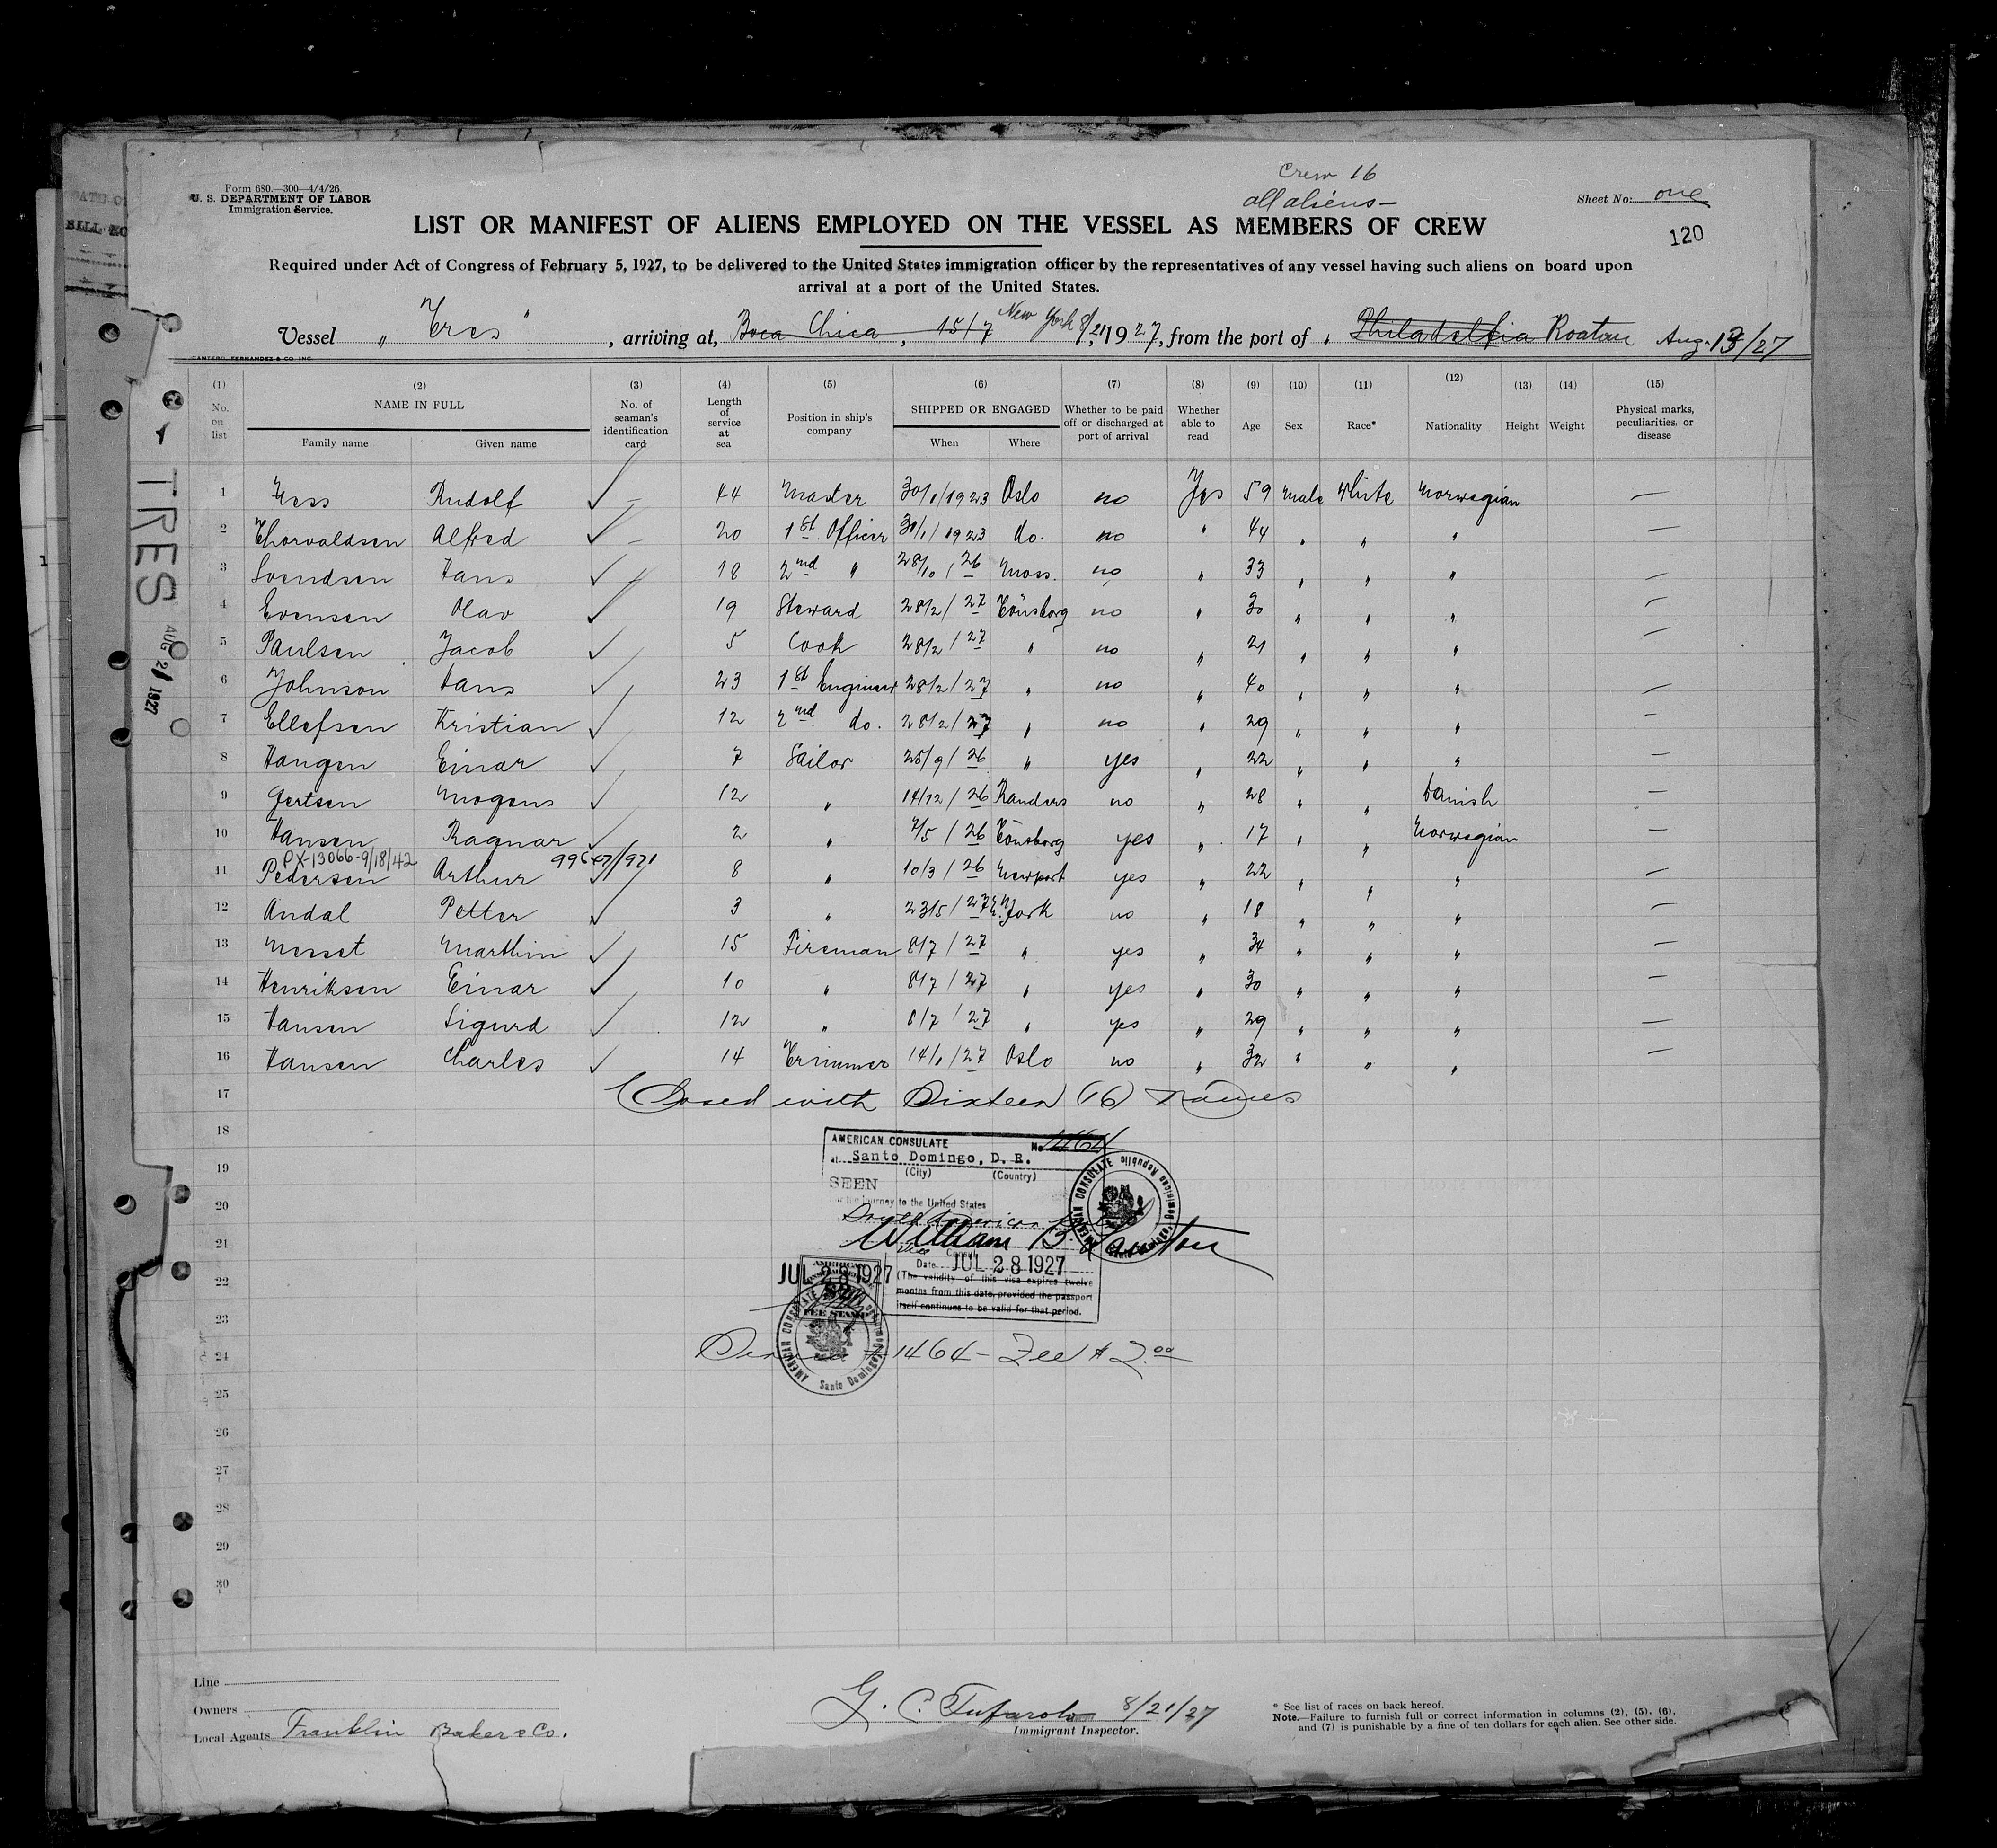 Crew 16
all aliens—
Form 680.—300—4/4/26.
U. S. DEPARTMENT OF LABOR
Immigration Service.
Sheet No: one
LIST OR MANIFEST OF ALIENS EMPLOYED ON THE VESSEL AS MEMBERS OF CREW
120
Required under Act of Congress of February 5, 1927, to be delivered to the United States immigration officer by the representatives of any vessel having such aliens on board upon
arrival at a port of the United States.
Vessel „ Tres " , arriving at, Boca Chica, 15/7 New York 8/21 1927, from the port of , Philadelfia Roatan Aug. 13/27
CANTERO, FERNANDEZ & CO. INC.
(1) (2) (3) (4) (5) (6) (7) (8) (9) (10) (11) (12) (13) (14) (15)
No. on list NAME IN FULL Family name Given name No. of seaman's identification card Length of service at sea Position in ship's company SHIPPED OR ENGAGED When Where Whether to be paid off or discharged at port of arrival Whether able to read Age Sex Race* Nationality Height Weight Physical marks, peculiarities, or disease
1 Ness Rudolf ✓ – 44 Master 30/1/1923 Oslo no Yes 59 Male White Norwegian —
2 Thorvaldsen Alfred ✓ – 20 1st. Officer 30/1/1923 do. no " 44 " " " —
3 Svendsen Hans ✓ 18 2nd " 28/10/26 Moss. no " 33 " " " —
4 Evensen Olav ✓ 19 Steward 28/2/27 Tönsberg no " 30 " " " —
5 Paulsen Jacob ✓ 5 Cook 28/2/27 " no " 21 " " " —
6 Johnson Hans ✓ 23 1st Engineer 28/2/27 " no " 40 " " " —
7 Ellefsen Kristian ✓ 12 2nd. do. 28/2/27 " no " 29 " " " —
8 Haugen Einar ✓ 7 Sailor 25/9/26 " yes " 22 " " " —
9 Gertsen Mogens ✓ 12 " 14/12/26 Randers no " 28 " " Danish —
10 Hansen Ragnar ✓ 2 " 7/5/26 Tönsberg yes " 17 " " Norwegian —
PX-13066-9/18/42 99647/921
11 Pedersen Arthur ✓ 8 " 10/3/26 Newport yes " 22 " " " —
12 Andal Petter ✓ 3 " 23/5/27 N. York no " 18 " " " —
13 Messet Marthin ✓ 15 Fireman 8/7/27 " yes " 34 " " " —
14 Henriksen Einar ✓ 10 " 8/7/27 " yes " 30 " " " —
15 Hansen Sigurd ✓ 12 " 8/7/27 " yes " 29 " " " —
16 Hansen Charles ✓ 14 Trimmer 14/1/27 Oslo no " 32 " " " —
17 Closed with Sixteen (16) Names
18
19
20
21
22
23
24
25
26
27
28
29
30
AMERICAN CONSULATE No. 1464
at Santo Domingo, D. R.
(City) (Country)
SEEN
For the journey to the United States
William B. Lawton
Vice Consul
Date JUL 28 1927
(The validity of this visa expires twelve
months from this date, provided the passport
itself continues to be valid for that period.
AMERICAN CONSULATE Santo Domingo, Dominican Republic
JUL 28 1927
FEE STAMP
AMERICAN CONSULATE Santo Domingo
1464— Fee $ 2.00
TRES
AUG 21 1927
Line
Owners
Local Agents Franklin Baker & Co.
G. C. Tufarolo 8/21/27
Immigrant Inspector.
* See list of races on back hereof.
Note.—Failure to furnish full or correct information in columns (2), (5), (6),
and (7) is punishable by a fine of ten dollars for each alien. See other side.